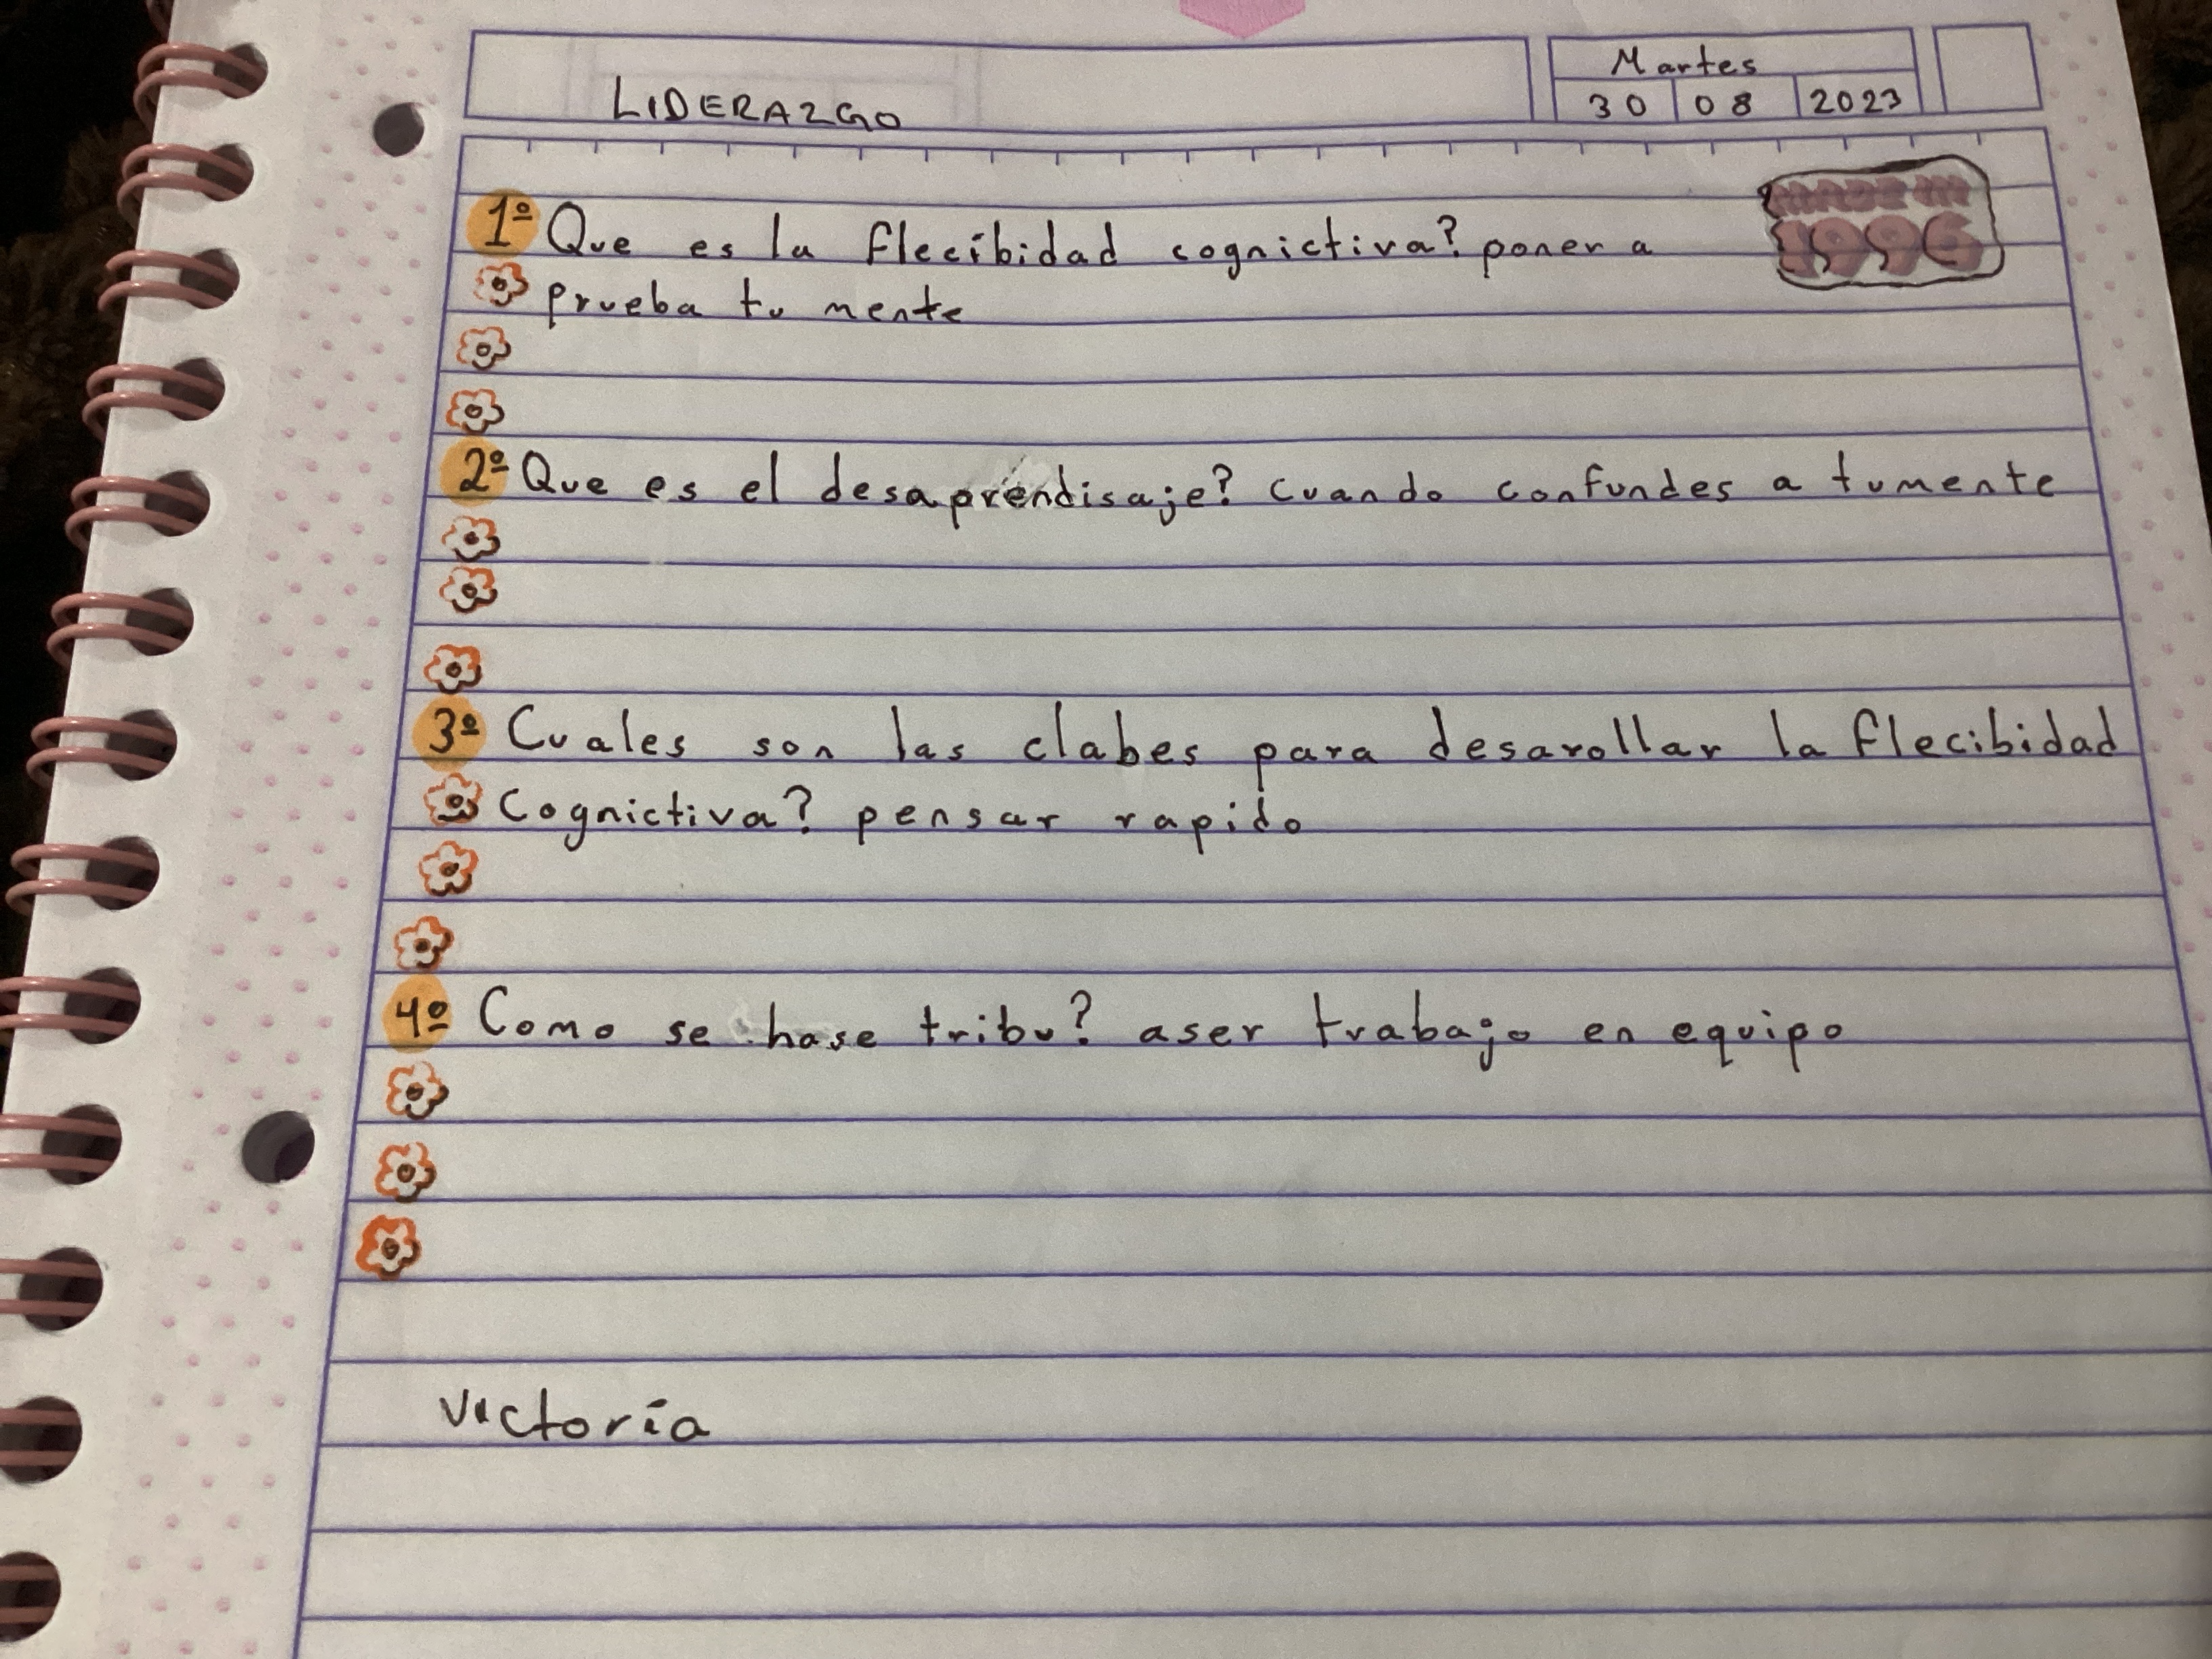 LIDERAZGO
Martes
30 08 2023
MADE IN
1996
1º Que es la flecibidad cognictiva? poner a
prueba tu mente
2º Que es el desaprendisaje? cuando confundes a tumente
3º Cuales son las clabes para desarollar la flecibidad
Cognictiva? pensar rapido
4º Como se hase tribu? aser trabajo en equipo
Victoria